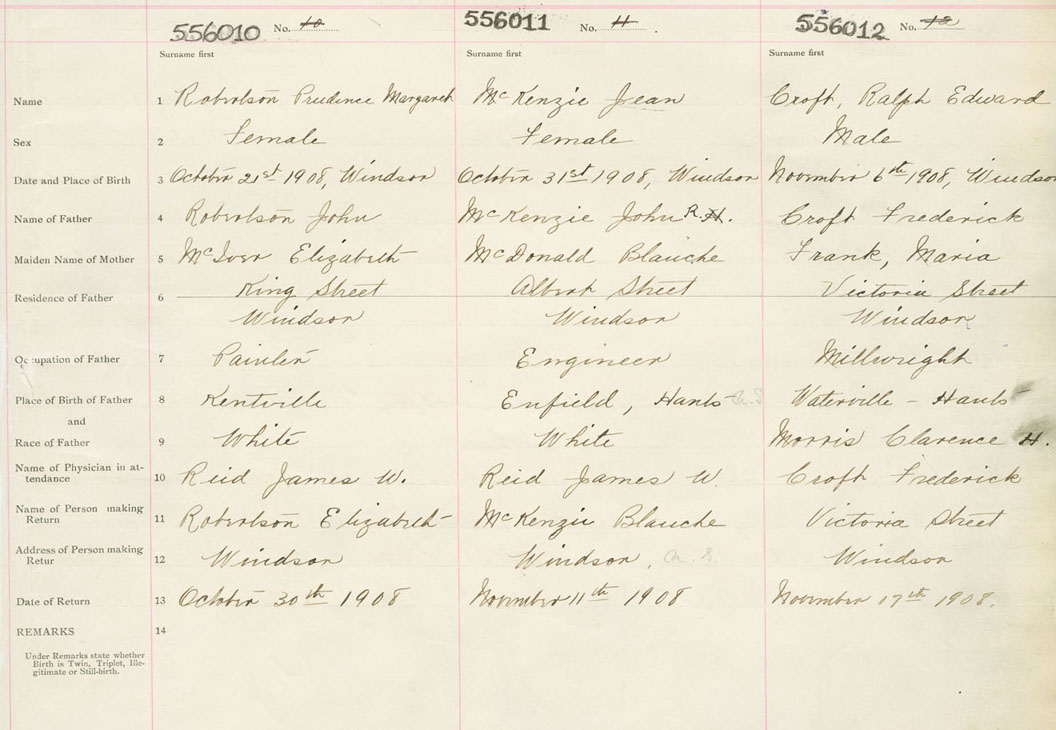 556010 No. 10 556011 No. 11 556012 No. 12
Surname first Surname first Surname first
Name 1 Robertson Prudence Margaret McKenzie Jean Croft, Ralph Edward
Sex 2 Female Female Male
Date and Place of Birth 3 October 21st 1908, Windsor October 31st 1908, Windsor November 6th 1908, Windsor
Name of Father 4 Robertson John McKenzie John R. H. Croft Frederick
Maiden Name of Mother 5 McIver Elizabeth McDonald Blanche Frank, Maria
King Street Albert Street Victoria Street
Residence of Father 6
Windsor Windsor Windsor
Occupation of Father 7 Painter Engineer Millwright
Place of Birth of Father 8 Kentville Enfield, Hants Waterville - Hants
and
Race of Father 9 White White Morris Clarence H.
Name of Physician in at-
tendance 10 Reid James W. Reid James W. Croft Frederick
Name of Person making
Return 11 Robertson Elizabeth McKenzie Blanche Victoria Street
Address of Person making
Retur 12 Windsor Windsor, Windsor
Date of Return 13 October 30th 1908 November 11th 1908 November 17th 1908.
REMARKS 14
Under Remarks state whether
Birth is Twin, Triplet, Ille-
gitimate or Still-birth.